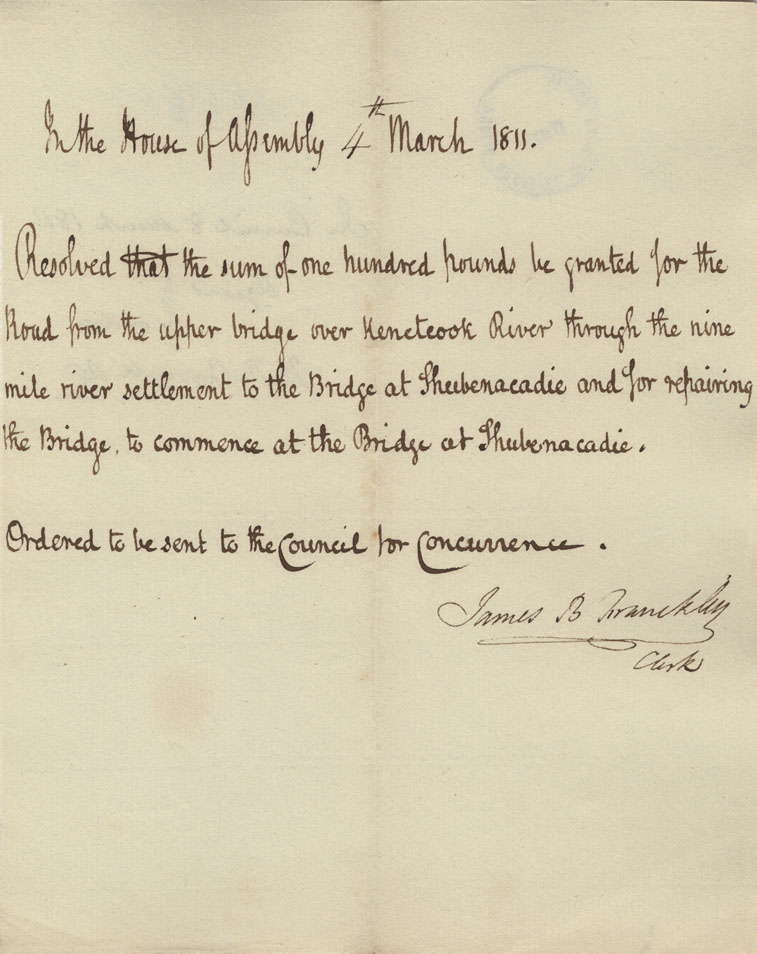 In the House of Assembly 4th March 1811.
Resolved that the sum of one hundred pounds be granted for the
Road from the upper bridge over Kenetcook River through the nine
mile river settlement to the Bridge at Shubenacadie and for repairing
the Bridge, to commence at the Bridge at Shubenacadie.
Ordered to be sent to the Council for Concurrence.
James B Franckley
Clerk